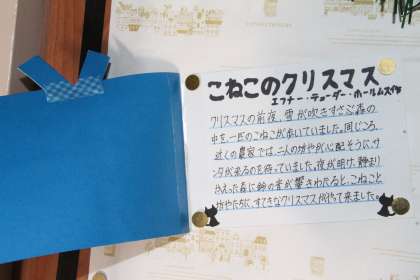 こねこのクリスマス
エフナー・テューダー・ホールムス作
クリスマスの前夜、雪が吹きすさぶ森の
中を、一匹のこねこが歩いていました。同じころ、
近くの農家では、二人の坊やが心配そうに、サ
ンタが来るのを待っていました。夜が明け、静まり
かえった森に鈴の音が響きわたると、こねこと
坊やたちに、すてきなクリスマスがやって来ました。